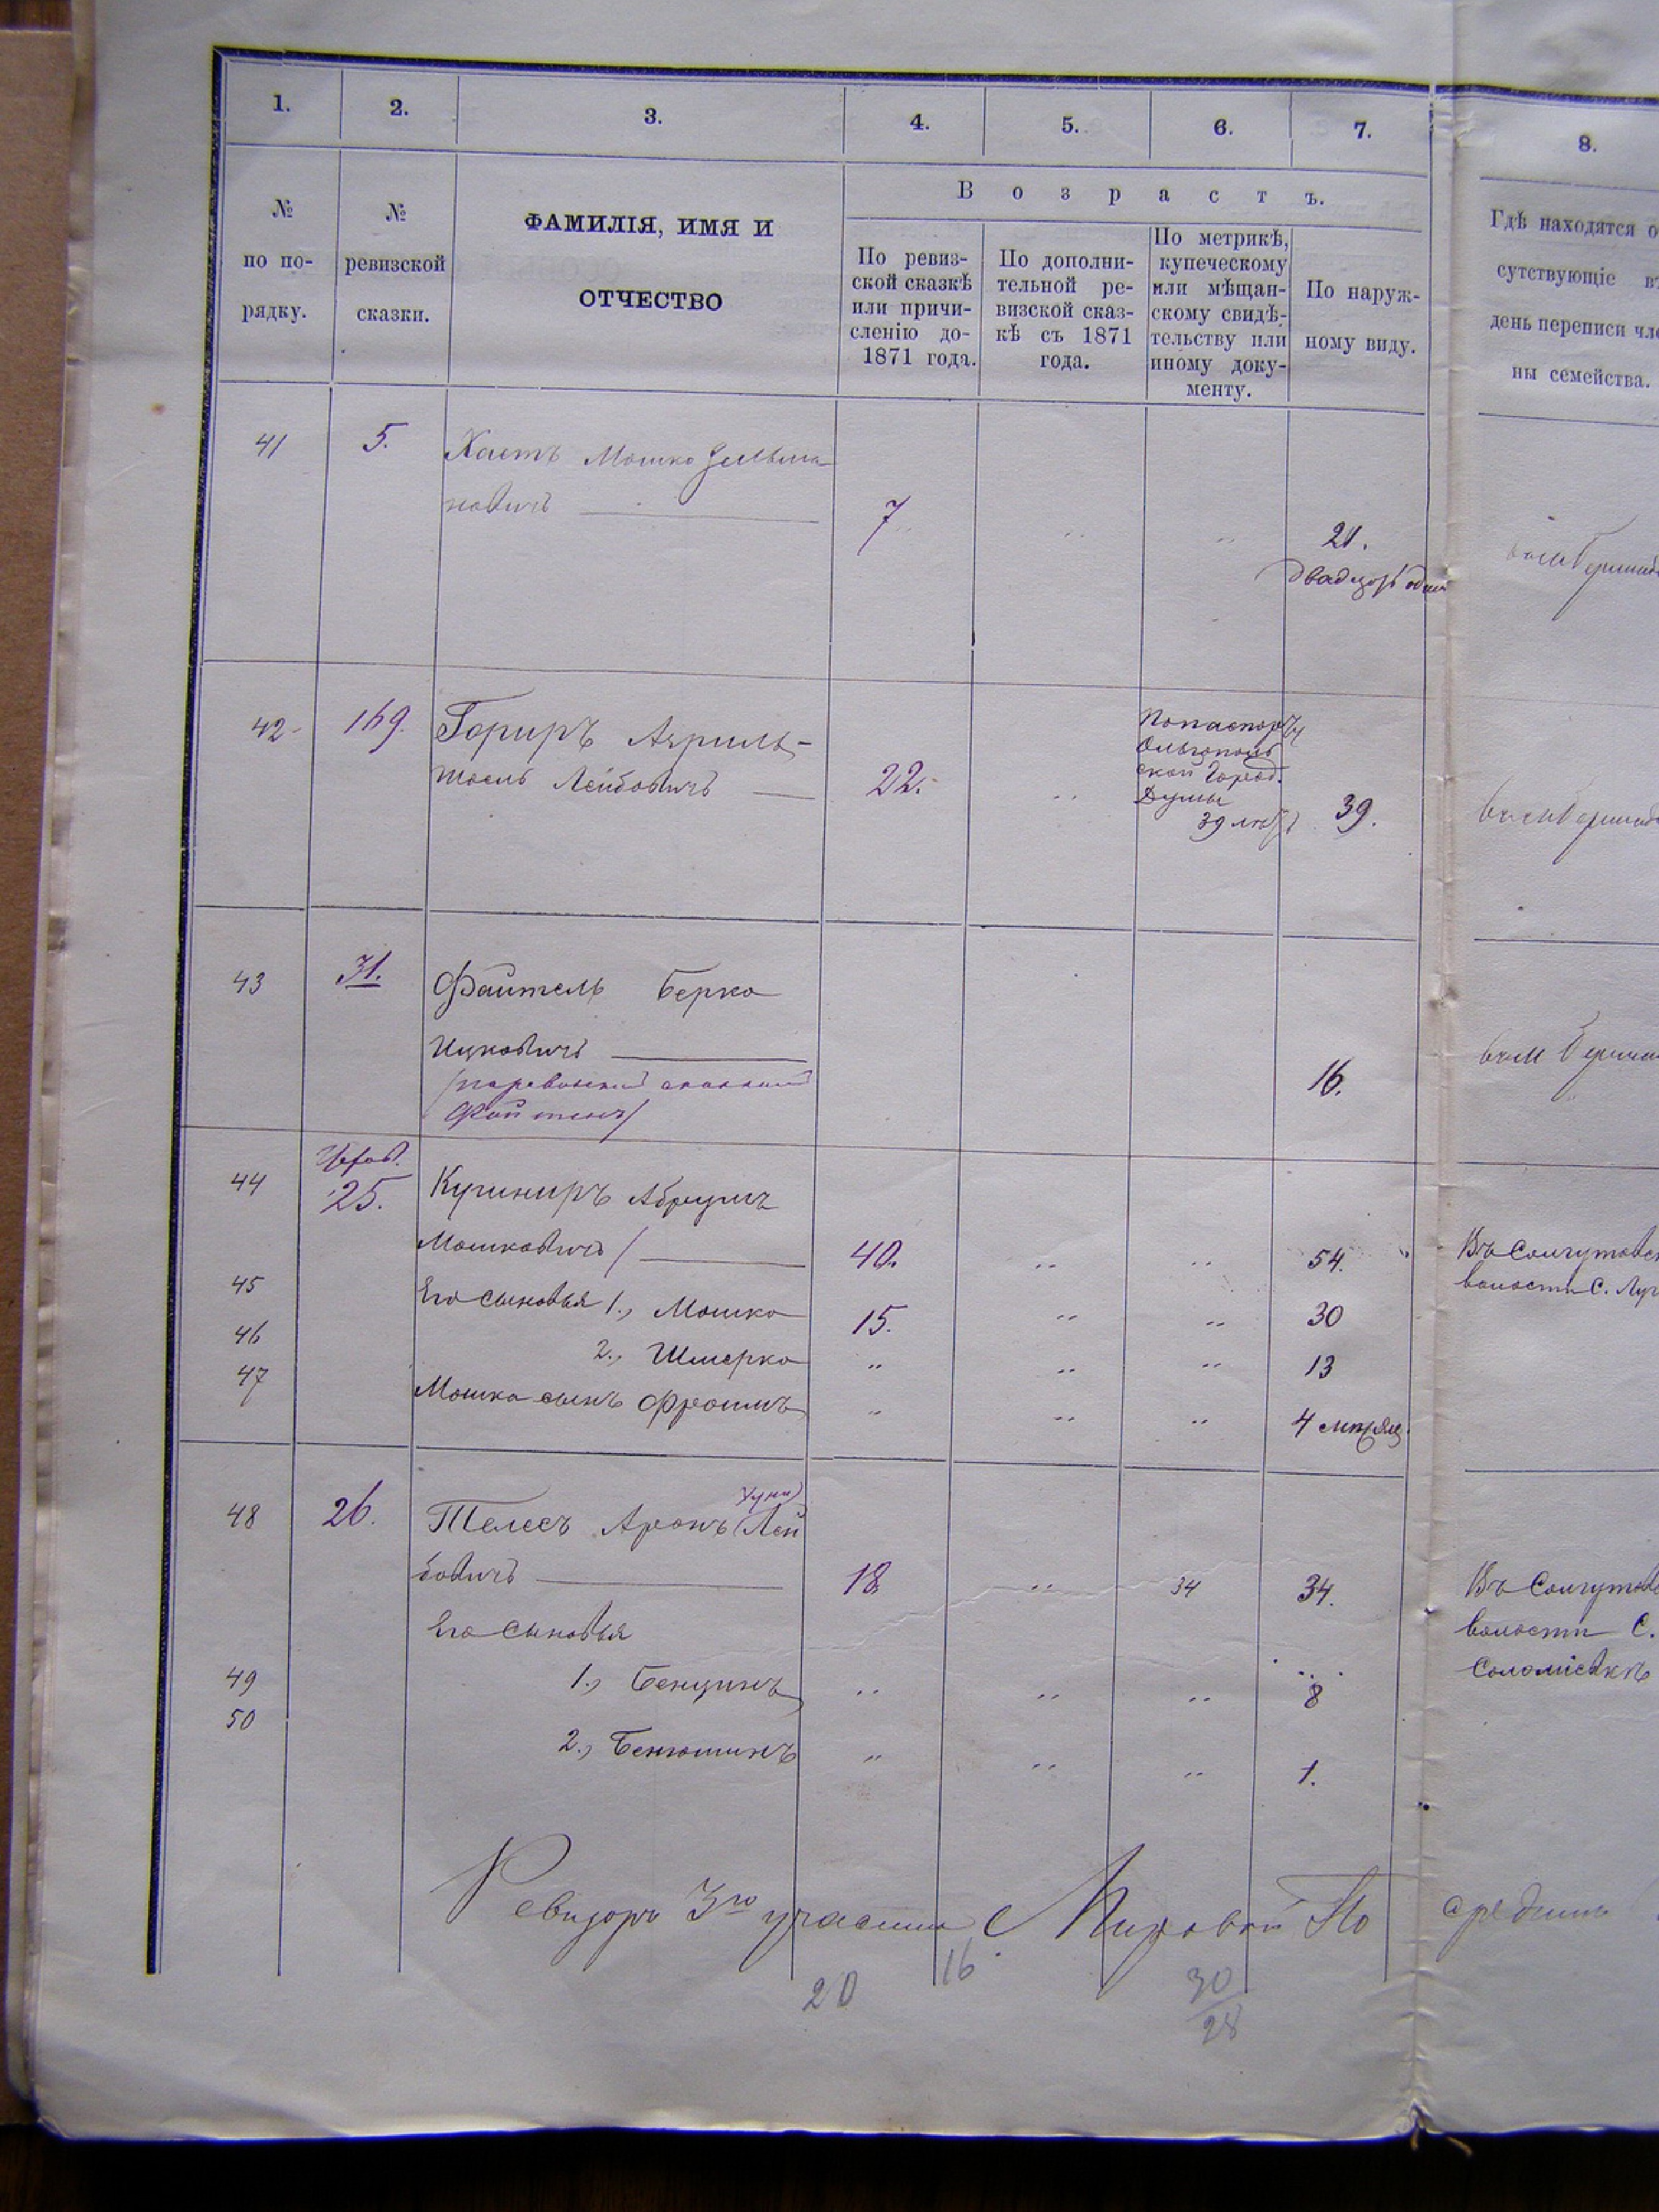 1.
2.
3.
4.
5.
6.
7.
8.
№
по по-
рядку.
№
ревизской
сказки.
ФАМИЛІЯ, ИМЯ И
ОТЧЕСТВО
Возрастъ.
По ревиз-
ской сказкѣ
или причи-
сленію до-
1871 года.
По дополни-
тельной ре-
визской сказ-
кѣ съ 1871
года.
По метрикѣ,
купеческому
или мѣщан-
скому свидѣ-
тельству или
иному доку-
менту.
По наруж-
ному виду.
Гдѣ находятся о
сутствующіе въ
день переписи чле
ны семейства.
41 5. Хаитъ Мошко Зельма-
новичъ 7 " " 21.
двадцать один
42 169. Гериръ Азриль-
Іосель Лейбовичъ 22. "
По паспорту
Ольгополь
ской Город.
Думы
39 лѣтъ 39.
43 31. Файтель Берко
Ицковичъ 16.
44 25. Кушниръ Абрумъ
Мошковичъ 40. " " 54.
Въ Соигутовск
волости С. Луг
45 Его сыновья 1., Мошко 15. " " 30
46 2., Шмерко " " " 13
47 Мошка сынъ Фроимъ " " " 4 мѣсяц.
48 26. Телесъ Аронъ Лей
бовичъ 18 " 34 34.
Въ Соигутов
волости С.
Соломіевкѣ
Его сыновья
49 1., Бенционъ " " " 8
50 2., Бенюминъ " " " 1.
Ревизоръ 3го участка Мировой По средникъ
20 16 30
28